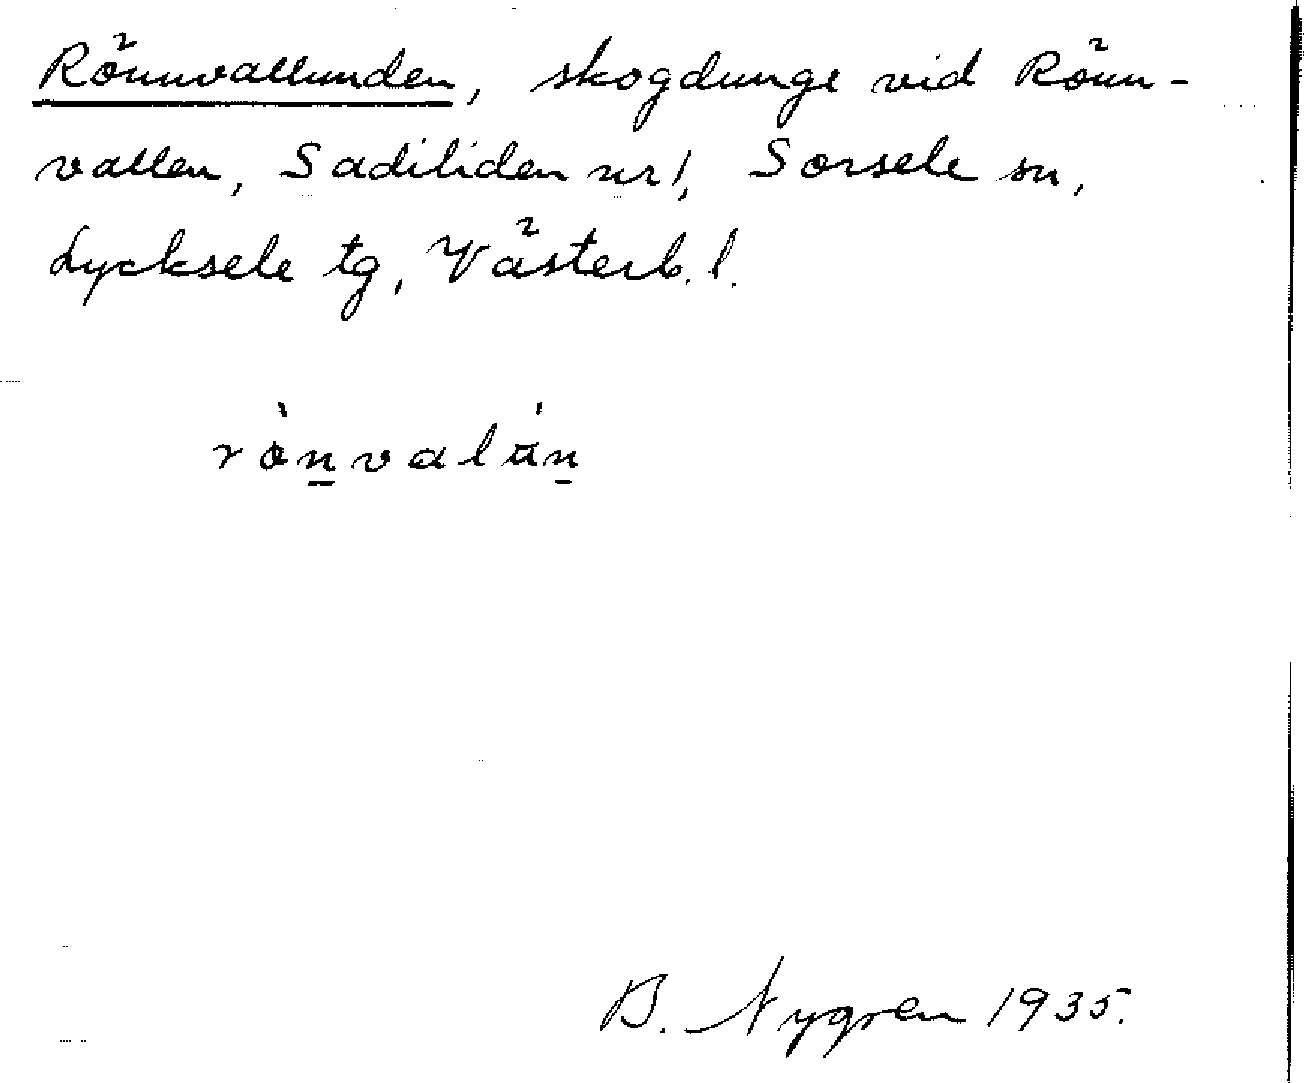 Rönnvallunden, skogdunge vid Rönn-
vallen, Sadiliden nr 1, Sorsele sn,
Lycksele tg, Västerb. l.
rònvalún
B. Nygren 1935.